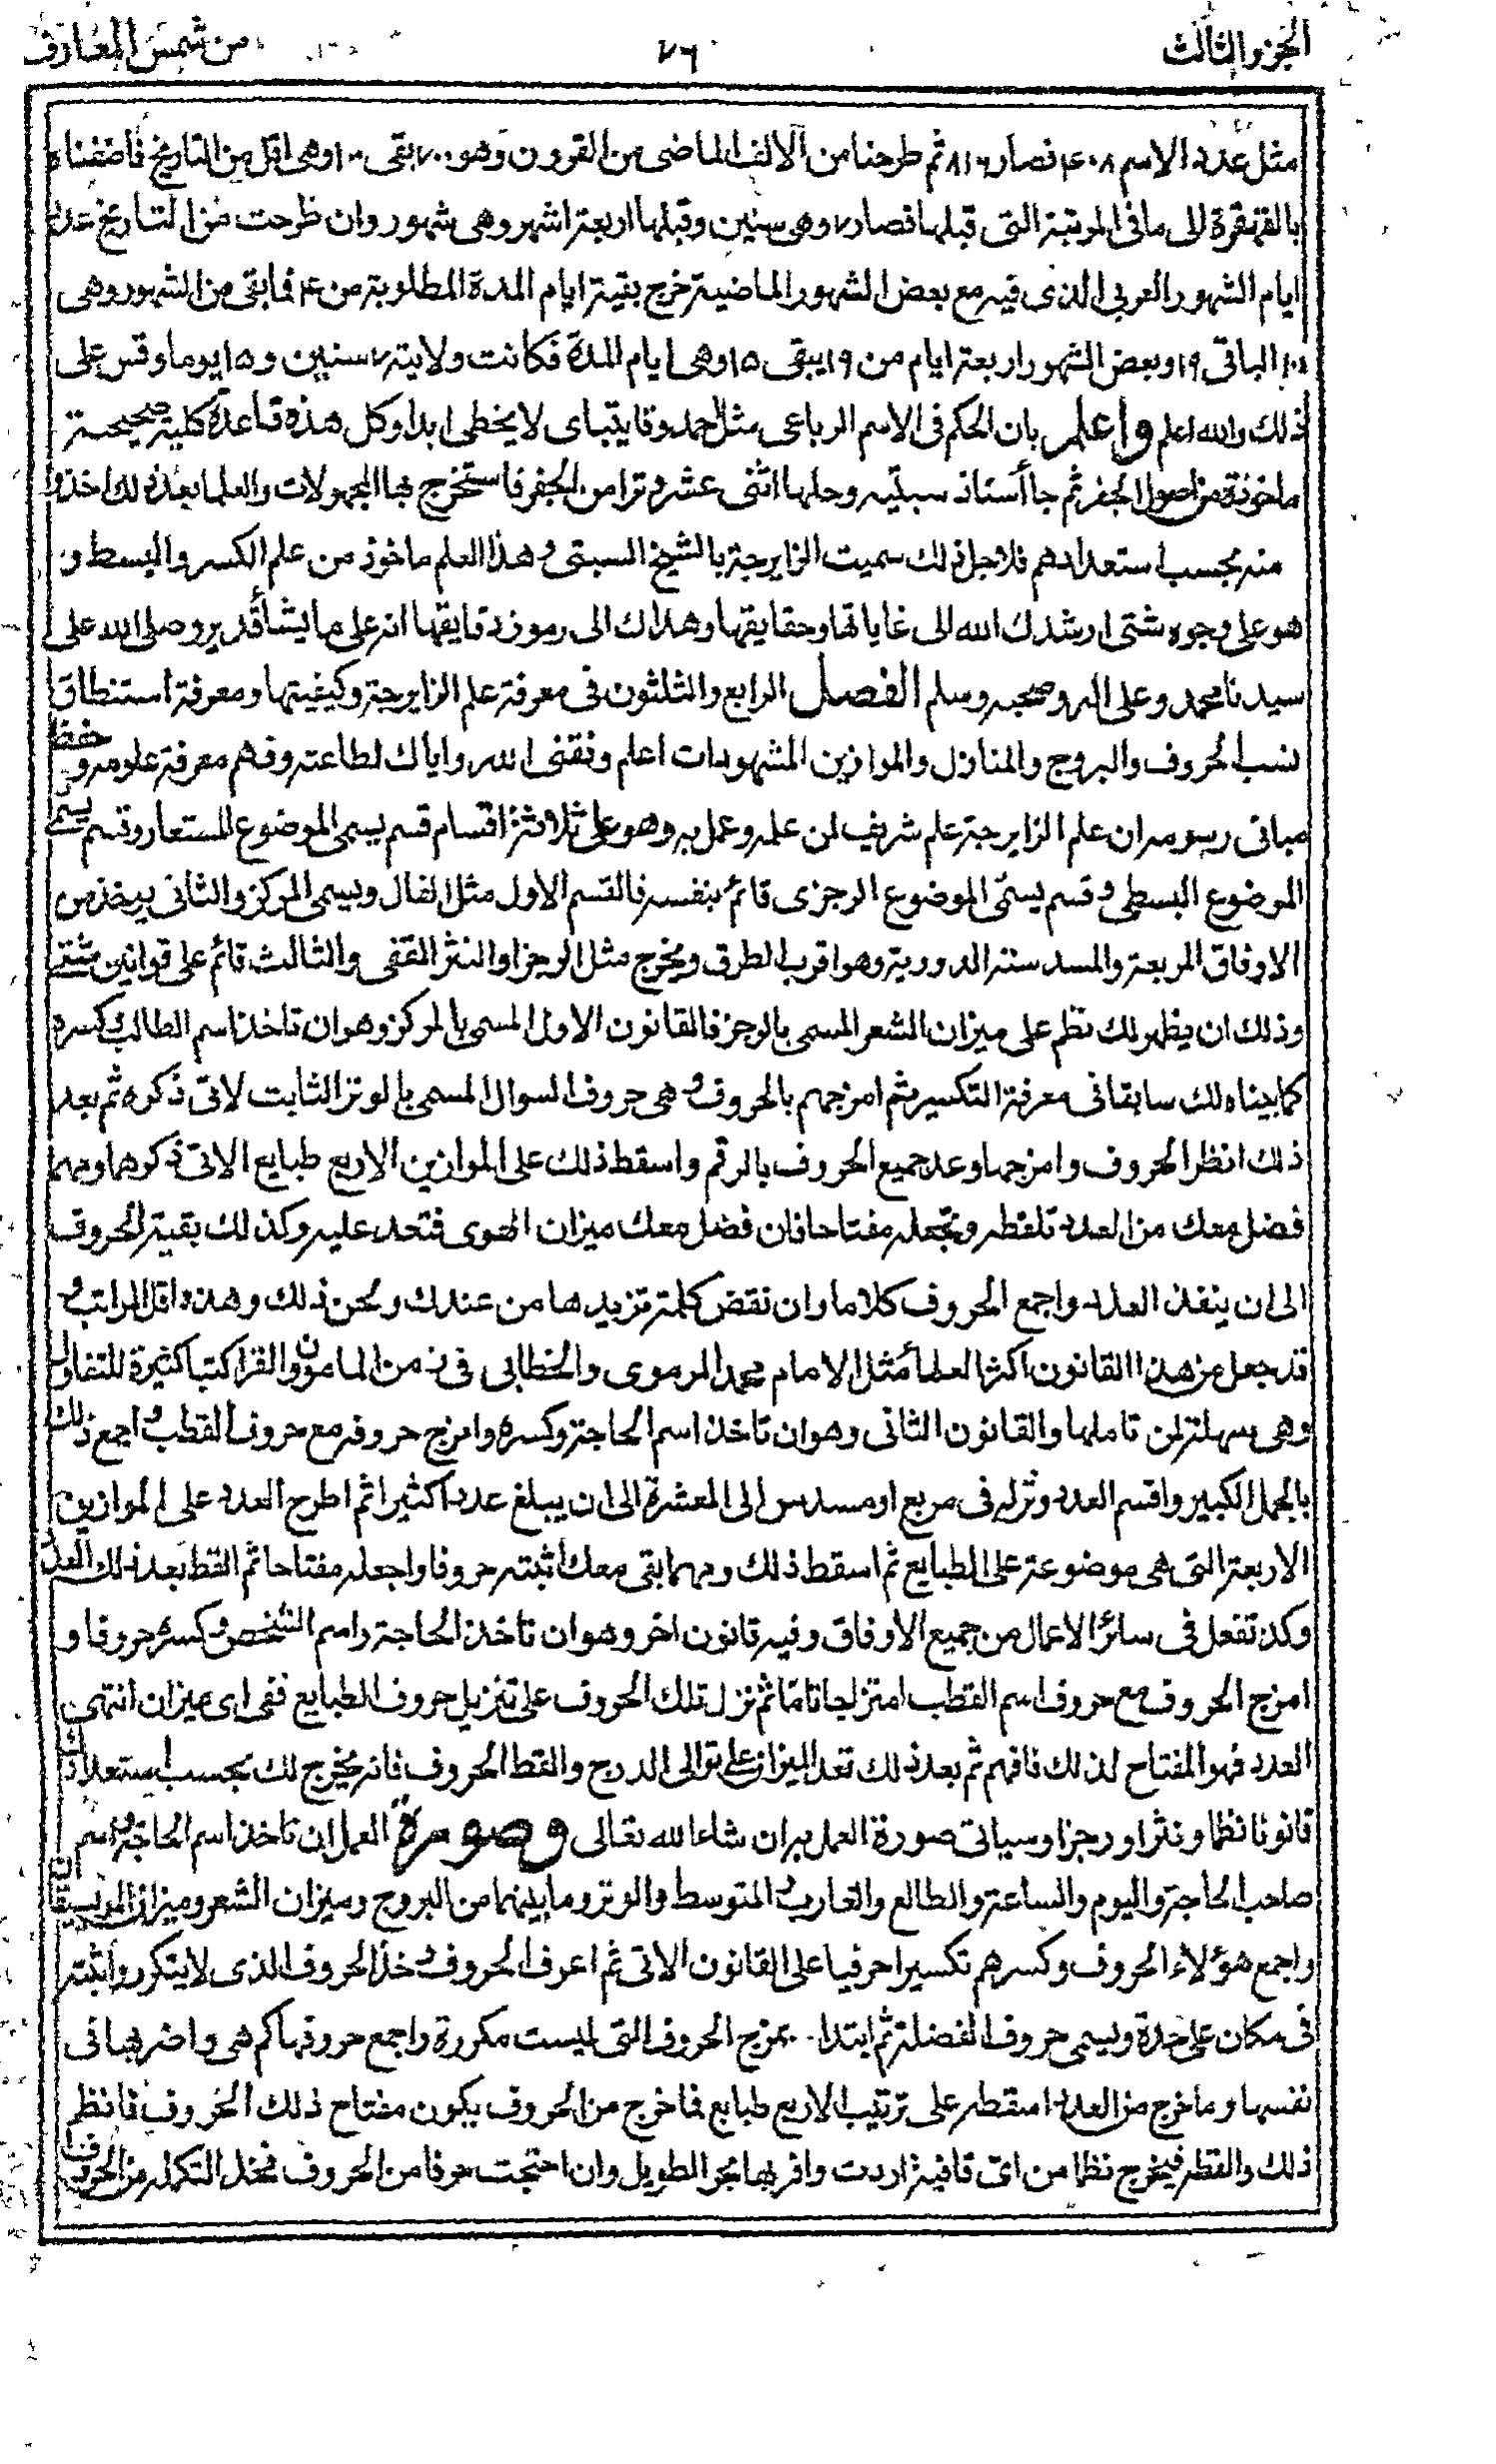 الجزو الثالث ٧٦ من شمس المعارف
مثل عدد الاسم ٤٠٨ فصار ٨١٦ ثم طرحنا من الالف الماضى من القرون وهو ٧٠٠ بقى ١٠٠ وهى اقل من التاريخ فاضفناه
بالقهقرة الى ما فى المرتبة التى قبلها فصار ٧ وهى سنين وقبلها اربعة اشهر وهى شهور وان طرحت من التاريخ عدد
ايام الشهور العربى الذى فيه مع بعض الشهور الماضية خرج بقية ايام المدة المطلوبة من ٤ فما بقى من الشهور وهى
١٠١ الباقى ١٩ وبعض الشهور اربعة ايام من ١٩ يبقى ١٥ وهى ايام المدة فكانت ولايته ٧ سنين و ١٥ يوما وقس على
ذلك والله اعلم واعلم بان الحكم فى الاسم الرباعى مثل احمد وقايتباى لا يخطى ابدا وكل هذه قاعدة كلية صحيحة
ماخوذة من اصول الجفر ثم جا أستاذ سبتيه وحلها اثنى عشر وترا من الجفر فاستخرج بها المجهولات والعلما بعد ذلك اخذوا
منه بحسب استعدادهم فلاجل ذلك سميت الزايرجة بالشيخ السبتى وهذا العلم ماخوذ من علم الكسر والبسط و
هو على وجوه شتى ارشدك الله الى غاياتها وحقايقها وهداك الى رموز دقايقها انه على ما يشأ قدير وصلى الله على
سيدنا محمد وعلى اله وصحبه وسلم الفصل الرابع والثلثون فى معرفة علم الزايرجة وكيفيتها ومعرفة استنطاق
نسب الحروف والبروج والمنازل والموازين المشهودات اعلم وفقنى الله واياك لطاعته وفهم معرفة علومه وحفظ
مبانى رسومه ان علم الزايرجة علم شريف لمن علمه وعمل به وهو على ثلاثة اقسام قسم يسمى الموضوع المستعار وقسم يسمى
الموضوع البسطى وقسم يسمّى الموضوع الرجزى قائم بنفسه فالقسم الاول مثل الفال ويسمى المركز والثانى يوخذ من
الاوفاق المربعة والمسدسة الدورية وهو اقرب الطرق ويخرج مثل الرجز او النثر القفى والثالث قائم على قوانين شتى
وذلك ان يظهر لك نظم على ميزان الشعر المسمى بالرجز فالقانون الاول المسمى بالمركز وهو ان تاخذ اسم الطالب وكسره
كما بيناه لك سابقا فى معرفة التكسير ثم امزجهم بالحروف وهى حروف السوال المسمى بالوتر الثابت لاتى ذكره ثم بعد
ذلك انظر الحروف وامزجها وعد جميع الحروف بالرقم واسقط ذلك على الموازين الاربع طبايع الاتى ذكرها ومهما
فضل معك من العدد تلقطه وتجعله مفتاحا فان فضل معك ميزان الهوى فتعد عليه وكذلك بقية الحروف
الى ان ينفذ العدد واجمع الحروف كلاما وان نقض كلمة تزيدها من عندك ونحن ذلك وهذه اقل المراتب و
قد جعل من هذا القانون اكثر العلماء مثل الامام محمد المرموى والخطابى فى زمن المامون والقرا كتبا كثيرة للتفاول
وهى سهلة لمن تاملها والقانون الثانى وهو ان تاخذ اسم الحاجة وكسره وامزج حروفه مع حروف القطب واجمع ذلك
بالجمل الكبير واقسم العدد ونزله فى مربع او مسدس الى المعشرة الى ان يبلغ عددا كثيرا ثم اطرح العدد على الموازين
الاربعة التى هى موضوعة على الطبايع ثم اسقط ذلك ومهما بقى معك اثبته حروفا واجعله مفتاحا ثم القط بعد ذلك العدد
وكذ تفعل فى سائر الاعمال من جميع الاوفاق وفيه قانون اخر وهو ان تاخذ الحاجة واسم الشخص وكسره حروفا و
امزج الحروف مع حروف اسم القطب امتزاجا تامّا ثم نزل تلك الحروف على تنزيل حروف الطبايع ففى اى ميزان انتهى
العدد فهو المفتاح لذلك فافهم ثم بعد ذلك تعد الميزان على توالى الدرج والقط الحروف فانه يخرج لك بحسب استعدادك
قانونا نظما ونثرا ورجزا وسياتى صورة العمل به ان شاء الله تعالى وصورة العمل ان تاخذ اسم الحاجة واسم
صاحب الحاجة واليوم والساعة والطالع والغارب والمتوسط والوتر وما بينهما من البروج وميزان الشعر وميزان الموسيقان
واجمع هؤلاء الحروف وكسرهم تكسيرا حرفيا على القانون الاتى ثم اعرف الحروف وخذ الحروف الذى لا يتكرر واثبته
فى مكان على حدة ويسمى حروف الفضلة ثم ابتدا بمزج الحروف التى ليست مكررة واجمع حروفها كم هى واضربها فى
نفسها وما خرج من العدد اسقطه على ترتيب الاربع طبايع فما خرج من الحروف يكون مفتاح ذلك الحروف فانظر
ذلك والقطه فيخرج نظما من اىّ قافية اردت واقربها بحر الطويل وان احتجت حرفا من الحروف فخذ التكمله من الحروف